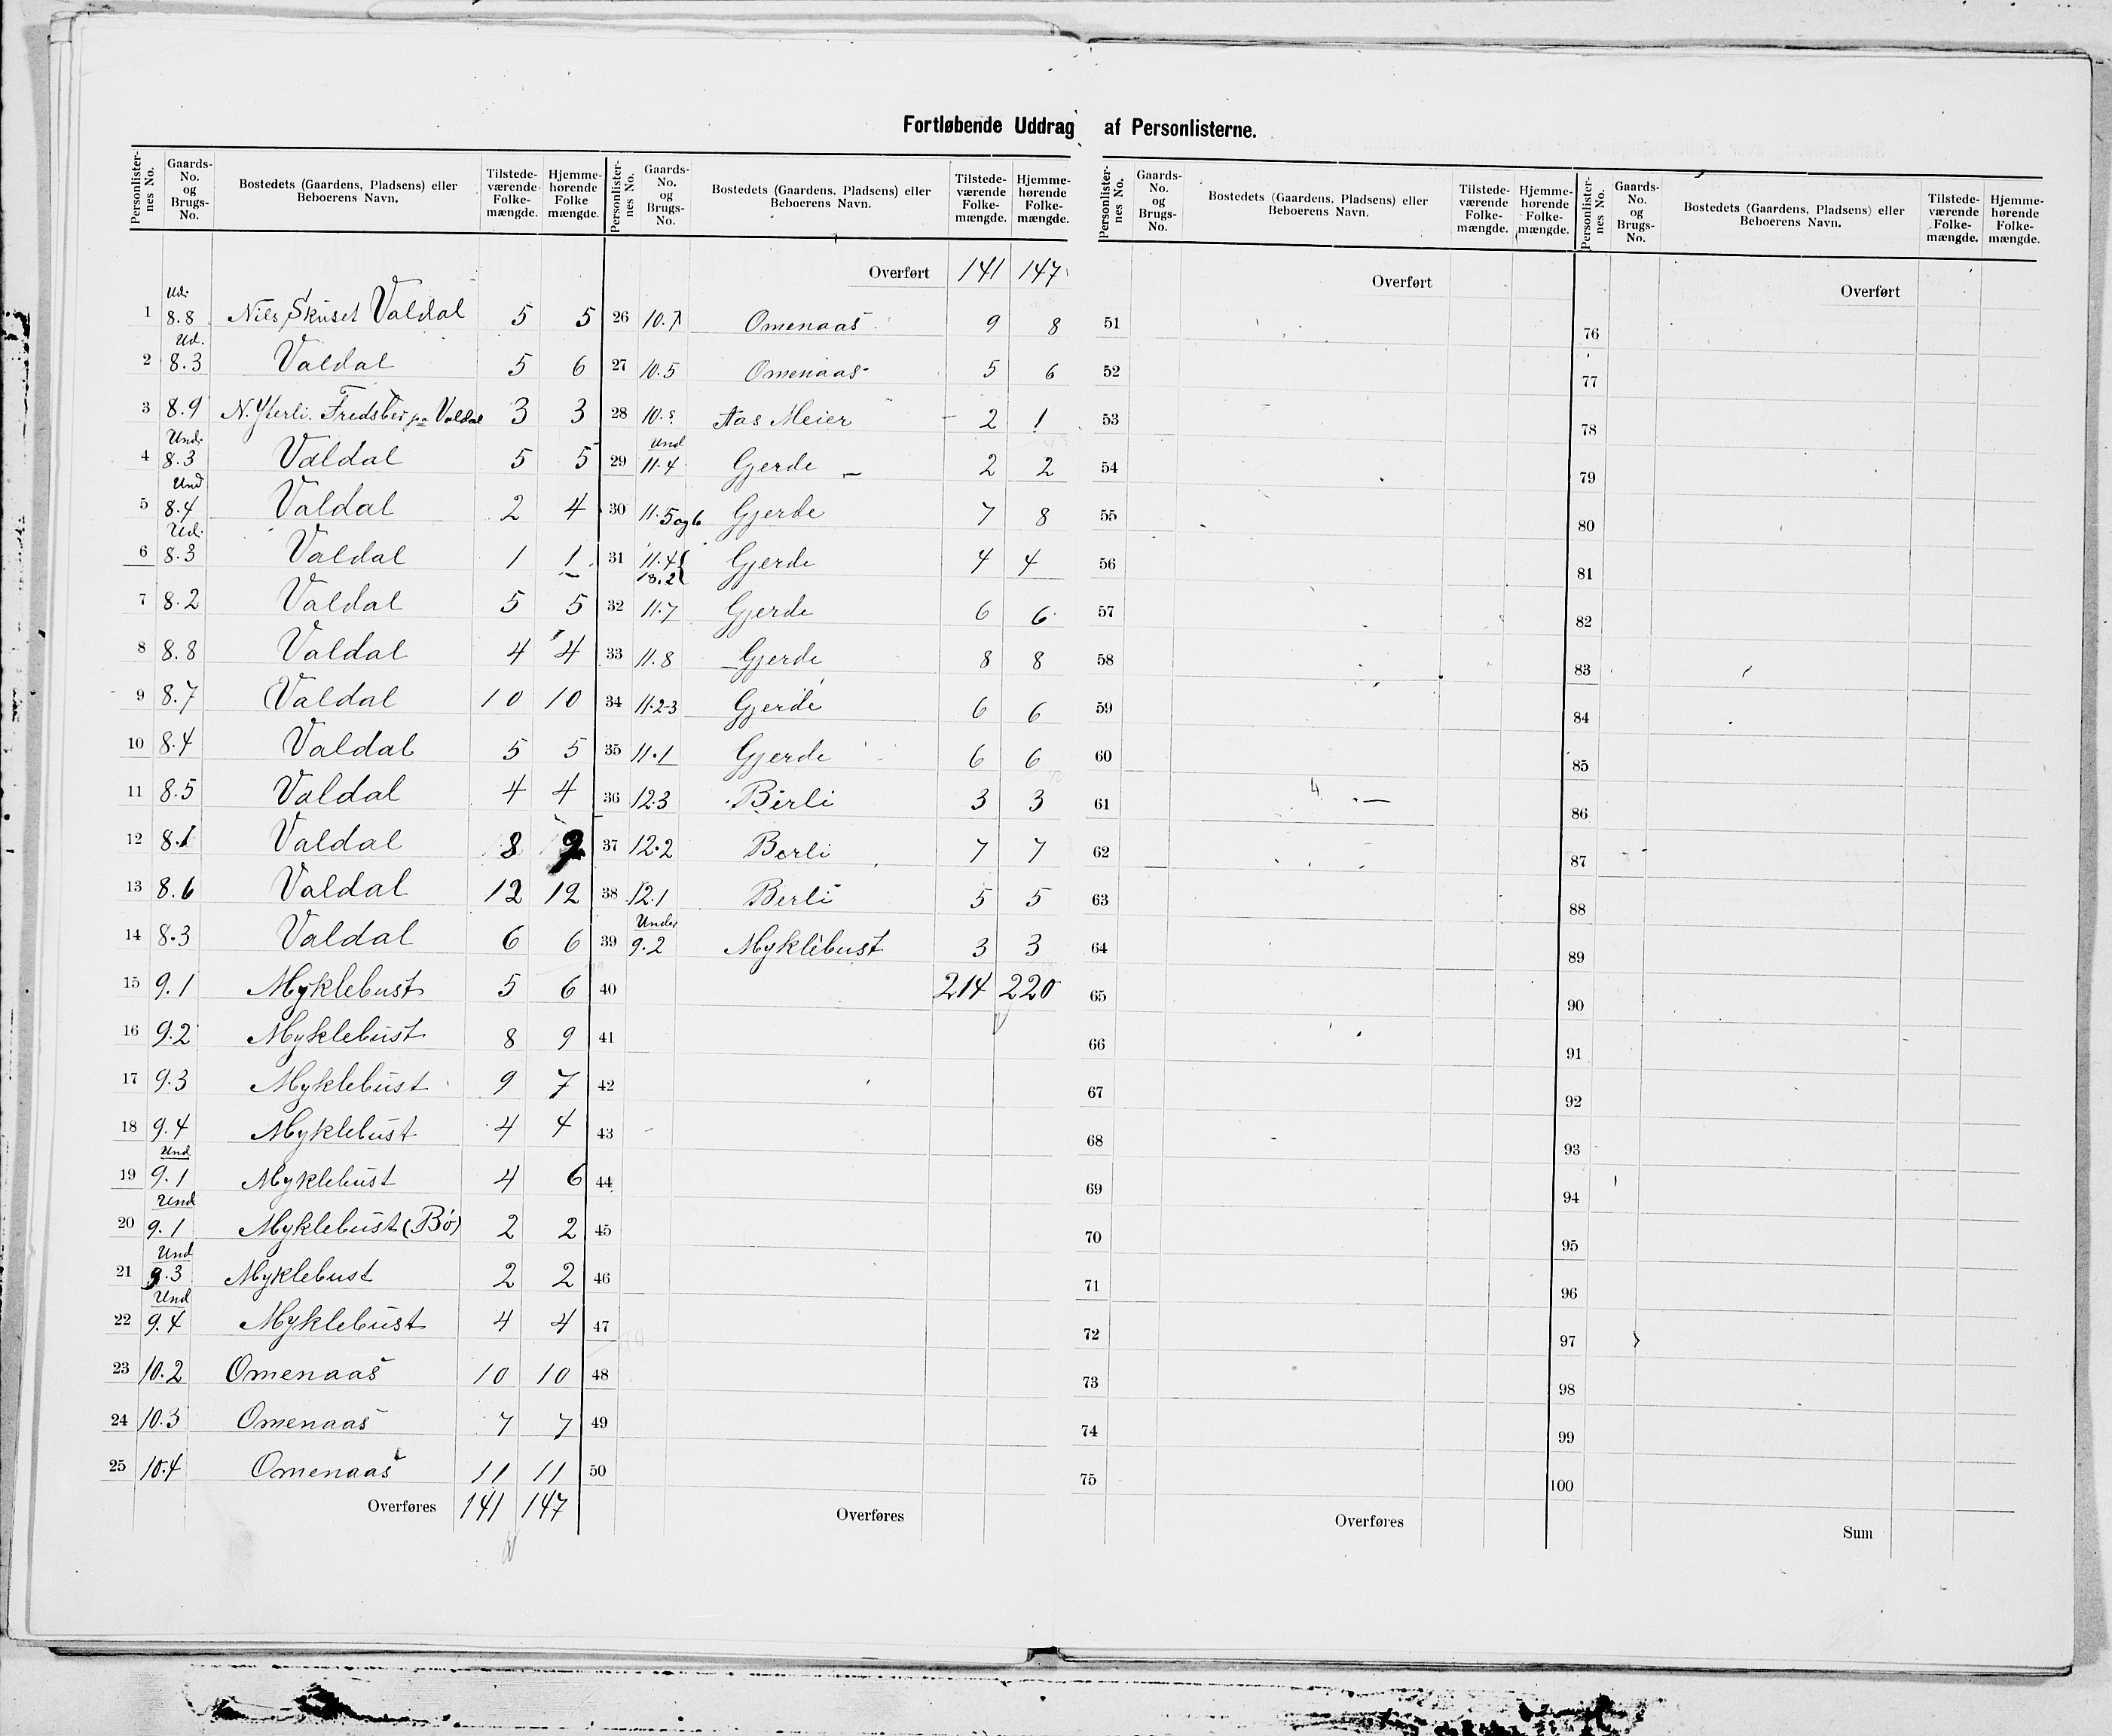 Fortløbende Uddrag af Personlisterne.
Personlisternes No. Gaards-No. og Brugs-No. Bostedets (Gaardens, Pladsens) eller Beboerens Navn. Tilstedeværende Folkemængde. Hjemmehørende Folke mængde.
Ud.
1 8.8 Nils Skuset Valdal 5 5
Ud.
2 8.3 Valdal 5 6
3 8.9 N. Yterli. Fredsbo paa Valdal 3 3
Und.
4 8.3 Valdal 5 5
Und
5 8.4 Valdal 2 4
Ud.
6 8.3 Valdal 1 1
7 8.2 Valdal 5 5
8 8.8 Valdal 4 4
9 8.7 Valdal 10 10
10 8.4 Valdal 5 5
11 8.5 Valdal 4 4
12 8.1 Valdal 8 9
13 8.6 Valdal 12 12
14 8.3 Valdal 6 6
15 9.1 Myklebust 5 6
16 9.2 Myklebust 8 9
17 9.3 Myklebust 9 7
18 9.4 Myklebust 4 4
Und
19 9.1 Myklebust 4 6
Und
20 9.1 Myklebust (Bø) 2 2
Und
21 9.3 Myklebust 2 2
Und
22 9.4 Myklebust 4 4
23 10.2 Omenaas 10 10
24 10.3 Omenaas 7 7
25 10.4 Omenaas 11 11
Overføres 141 147
Personlisternes No. Gaards-No. og Brugs-No. Bostedets (Gaardens, Pladsens) eller Beboerens Navn. Tilstedeværende Folkemængde. Hjemmehørende Folkemængde.
Overført 141 147
26 10.1 Omenaas 9 8
27 10.5 Omenaas 5 6
28 10. Aas Meier 2 1
Und
29 11.4 Gjerde 2 2
30 11.5 og 6 Gjerde 7 8
31 11.4 Gjerde 4 4
18.2
32 11.7 Gjerde 6 6
33 11.8 Gjerde 8 8
34 11.2-3 Gjerde 6 6
35 11.1 Gjerde 6 6
36 12.3 Berli 3 3
37 12.2 Berli 7 7
38 12.1 Berli 5 5
Under
39 9.2 Myklebust 3 3
40 214 220
41
42
43
44
45
46
47
48
49
50
Overføres
Personlisternes No. Gaards-No. og Brugs-No. Bostedets (Gaardens, Pladsens) eller Beboerens Navn. Tilstedeværende Folkemængde. Hjemmehørende Folkemængde.
Overført
51
52
53
54
55
56
57
58
59
60
61
62
63
64
65
66
67
68
69
70
71
72
73
74
75
Overføres
Personlisternes No. Gaards-No. og Brugs-No. Bostedets (Gaardens, Pladsens) eller Beboerens Navn. Tilstedeværende Folkemængde. Hjemmehørende Folkemængde.
Overført
76
77
78
79
80
81
82
83
84
85
86
87
88
89
90
91
92
93
94
95
96
97
98
99
100
Sum